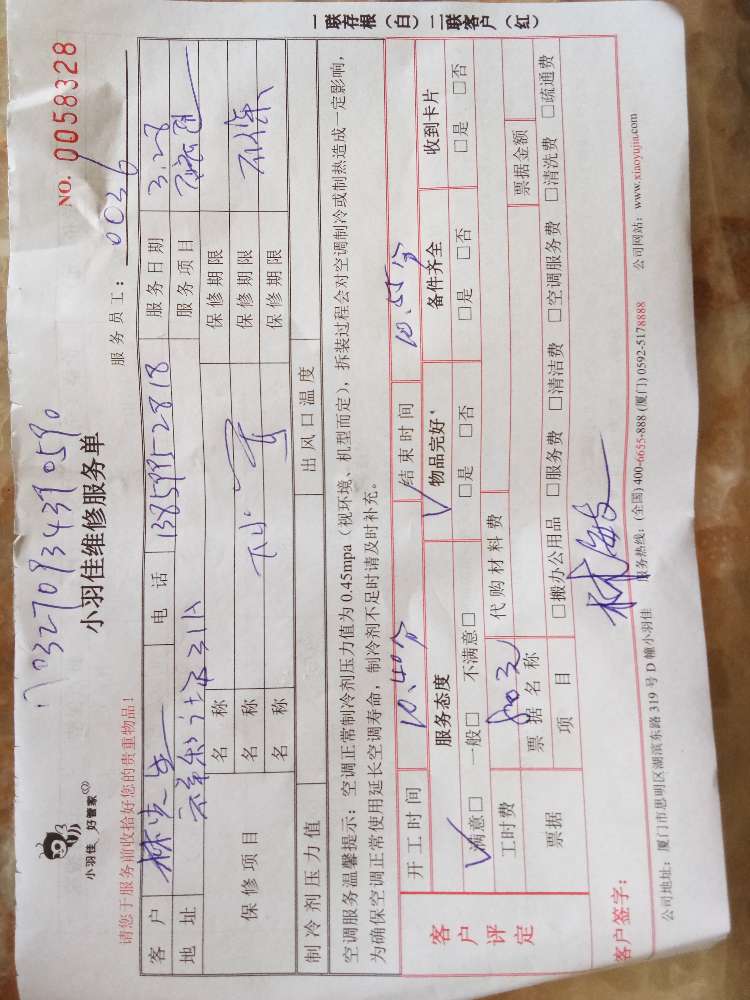 一联存根（白）二联客户（红）
NO. 0058328
小羽佳 好管家
小羽佳维修服务单
服务员工：0036
请您于服务前收拾好您的贵重物品！
客户 林先生 电话 服务日期 3.28
地址 服务项目
保修项目 名称 保修期限
名称 保修期限 不保
名称 保修期限
制冷剂压力值 出风口温度
空调服务温馨提示：空调正常制冷剂压力值为0.45mpa（视环境、机型而定），拆装过程会对空调制冷或制热造成一定影响，
为确保空调正常使用延长空调寿命，制冷剂不足时请及时补充。
客户评定
开工时间 10.40分 结束时间 10.55分
服务态度 物品完好 备件齐全 收到卡片
满意□ 一般□ 不满意□ □是 □否 □是 □否 □是 □否
工时费 代购材料费 票据金额
票据 票据名称
项目 □搬办公用品 □服务费 □清洁费 □空调服务费 □清洗费 □疏通费
客户签字：
公司地址：厦门市思明区湖滨东路319号D幢小羽佳 服务热线：(全国) 400-6655-888 (厦门) 0592-5178888 公司网站：www.xiaoyujia.com